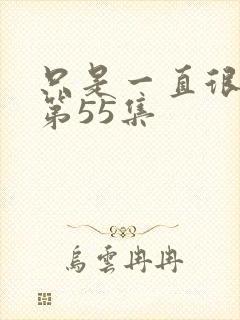 只是一直很
第55集
烏雲冉冉